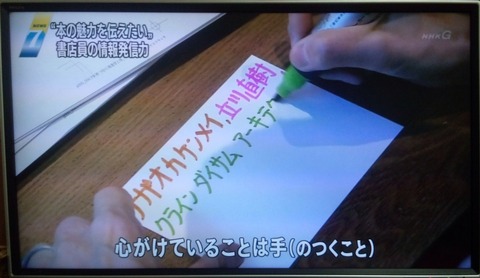 “本の魅力を伝えたい„
書店員の情報発信力
NHK G
ナガオカケンメイ,立川直樹
クライン ダイサム アーキテク
心がけていることは手(のつくこと)